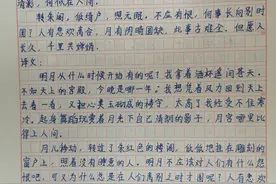 清影，何似在人间。
转朱阁，低绮户，照无眠。不应有恨，何事长向别时
圆？人有悲欢离合，月有阴晴圆缺，此事古难全。但愿人
长久，千里共婵娟。
译文：
明月从什么时候开始有的呢？我拿着酒杯遥问苍天。
不知天上的宫殿，今晚是哪一年。我想凭着风力回到天上
去看一看，又担心美玉砌成的楼宇，太高了我经受不住寒
冷。起身舞蹈玩赏着月光下自己清朗的影子，月宫哪里比
得上人间。
月儿移动，转过了朱红色的楼阁，低低地挂在雕刻的
窗户上，照着没有睡意的人。明月不应该对人们有什么怨
恨吧，可又为什么总是在人们离别之时才圆呢？人有悲欢